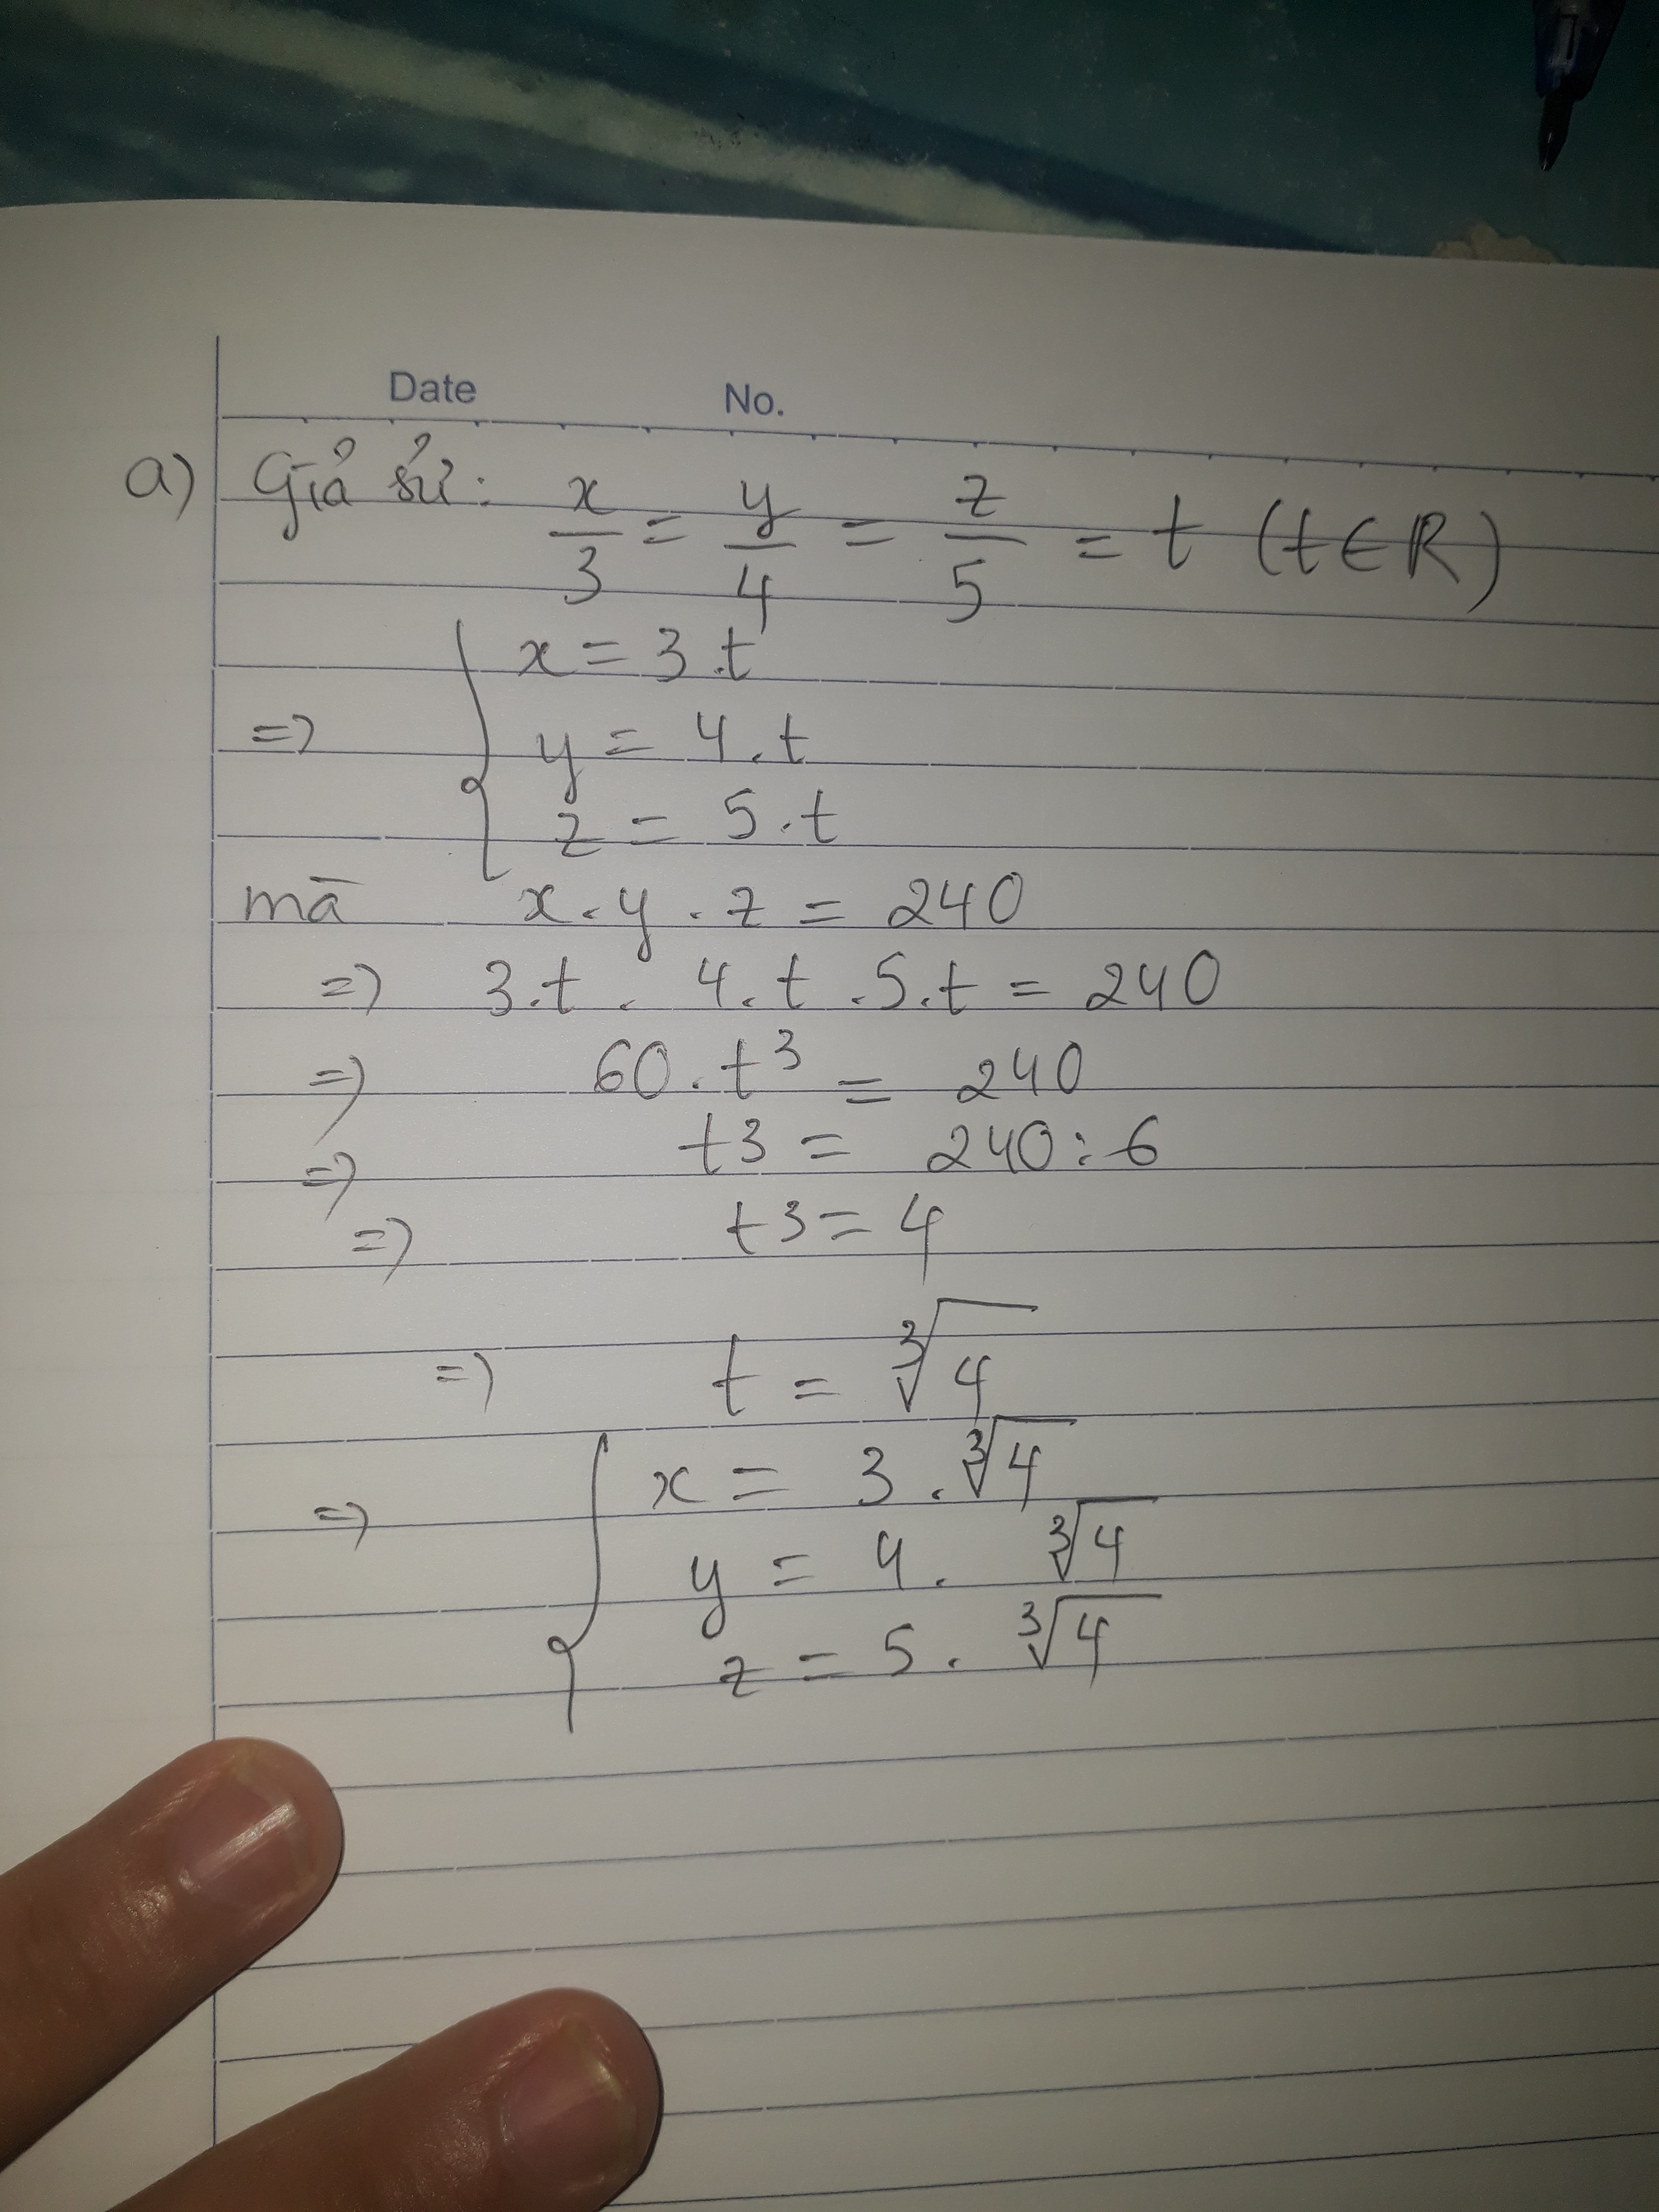 Date No.
a) Giả sử: x/3 = y/4 = z/5 = t (t∈R)
x = 3.t
=> y = 4.t
z = 5.t
mà x.y.z = 240
=> 3.t . 4.t .5.t = 240
=> 60.t³ = 240
=> t3 = 240:6
=> t3 = 4
=> t = ∛4
x = 3.∛4
=> y = 4. ∛4
z = 5. ∛4